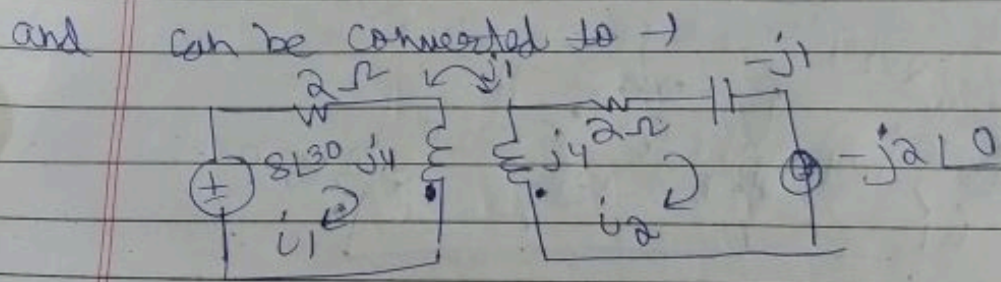 and can be converted to →
2Ω j1 -j1
8∠30 j4 j4 2Ω -j2∠0
i1 i2